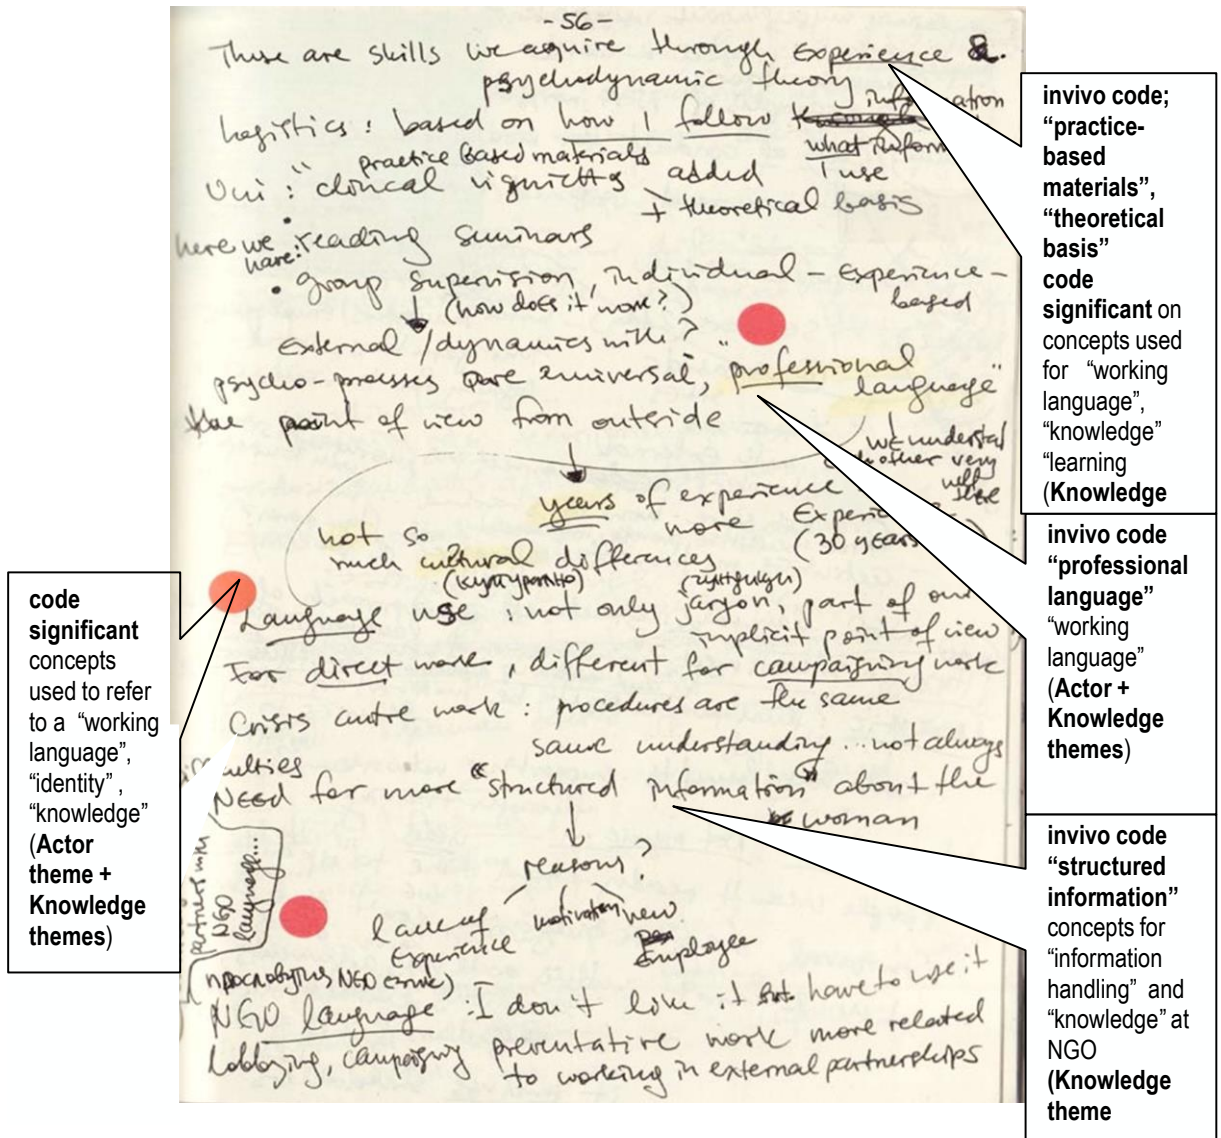 - 56 -
These are skills we aquire through Experience &
psychodynamic theory
information
Logistics : based on how I follow
what inform
practice based materials
Uni : "clinical vignettes added I use
+ theoretical basis
here we have: reading seminars
• group supervision, individual - Experience-
based
(how does it work?)
External / dynamics with?
psycho-processes are universal, "professional
language"
the point of view from outside
we understand
each other very
well
years of experience
more Experience
(30 years
not so
much cultural differences
Language use : not only jargon, part of our
implicit point of view
For direct work, different for campaigning work
Crisis centre work : procedures are the same
same understanding ... not always
difficulties
NEEd for more "structured information" about the
woman
reasons?
lack of
Experience
motivation
new
Employee
partners with
NGO
language...
NGO language : I don't like it but have to use it
lobbying, campaigning preventative work more related
to working in external partnerships
invivo code;
“practice-
based
materials”,
“theoretical
basis”
code
significant on
concepts used
for “working
language”,
“knowledge”
“learning
(Knowledge
invivo code
“professional
language”
“working
language”
(Actor +
Knowledge
themes)
invivo code
“structured
information”
concepts for
“information
handling” and
“knowledge” at
NGO
(Knowledge
theme
code
significant
concepts
used to refer
to a “working
language”,
“identity” ,
“knowledge”
(Actor
theme +
Knowledge
themes)